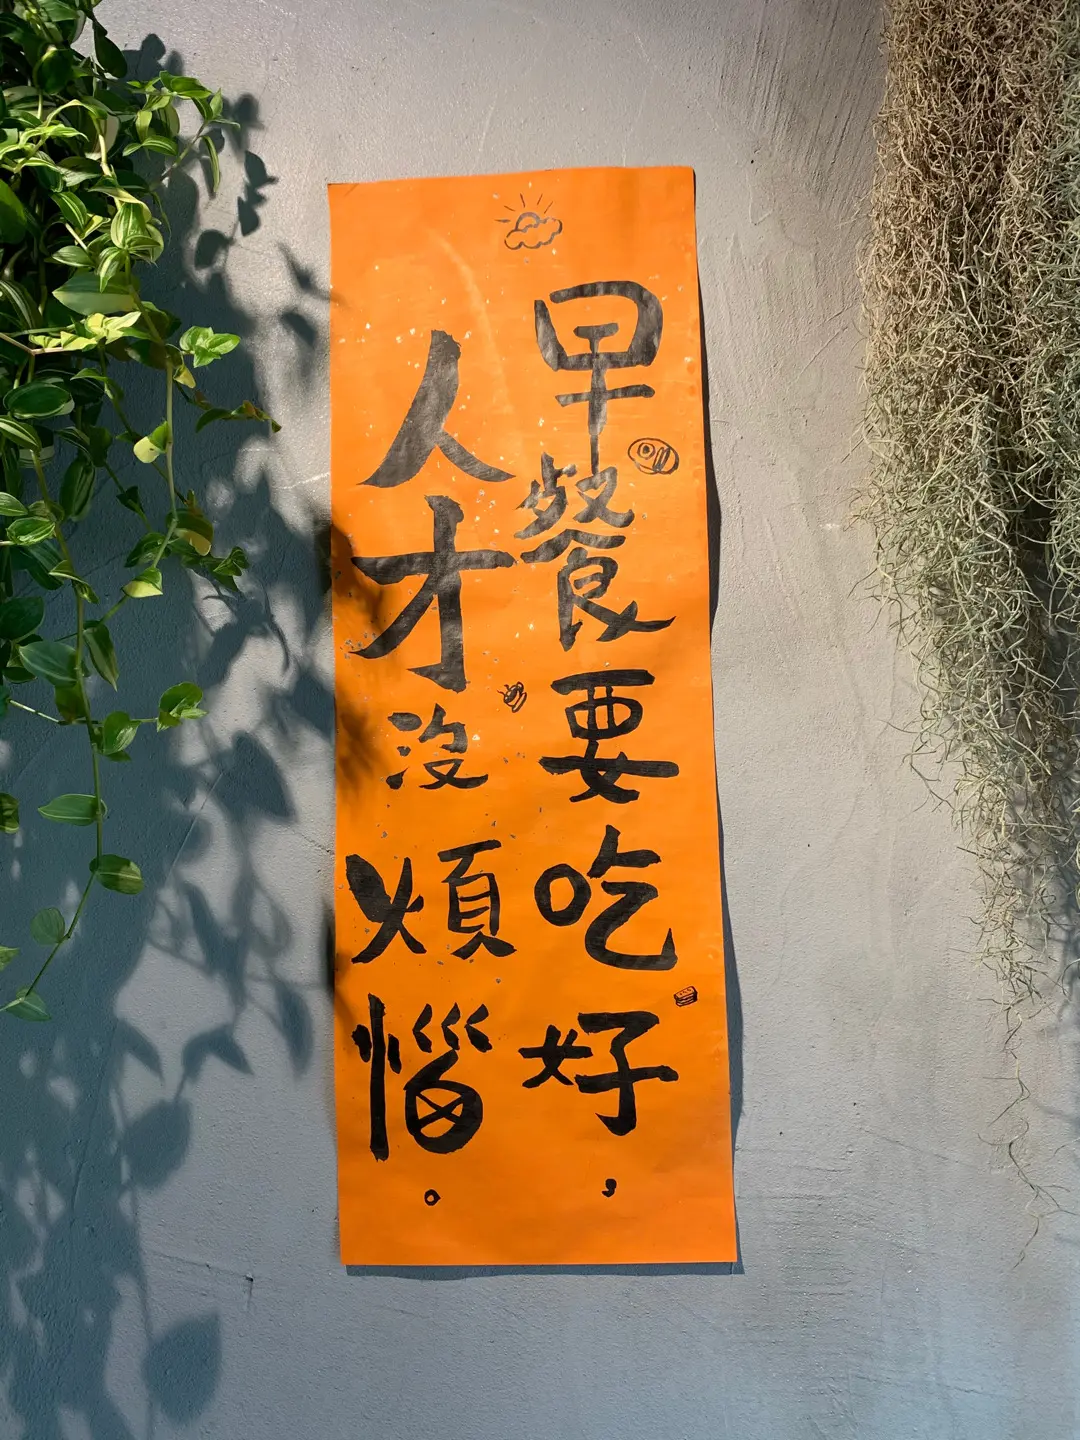 早餐要吃好，
人才沒煩惱。